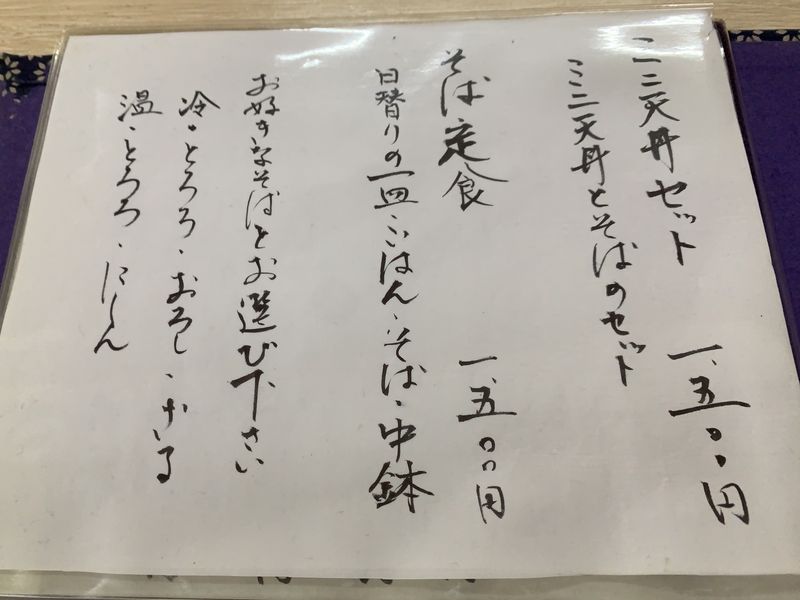 ミニ天丼セット 一、五〇〇円
ミニ天丼とそばのセット
そば定食 一、五〇〇円
日替りの一皿・ごはん・そば・中鉢
お好きなそばをお選び下さい
冷・とろろ・おろし・
温・とろろ・にしん